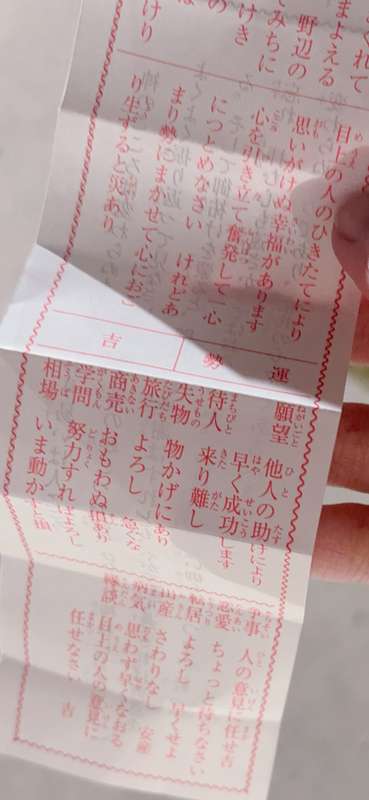 くれて
まよえる
野辺の
てみちに
けき
の
は
けり
目上の人のひきたてにより
思いがけぬ幸福があります
心を引き立て奮発して一心
につとめなさい けれどあ
まり勢にまかせて心におご
り生ずると災あり
運勢
吉
願望 他人の助けにより
早く成功します
待人 来り難し
失物 物かげにあり
旅行 よろし
商売 おもわぬ
学問 努力すればよろし
相場 いま動かず
争事 人の意見に任せ吉
恋愛 ちょっと待ちなさい
転居 よろし 早くせよ
出産 さわりなし 安産
病気 思わず早くなおる
縁談 目上の人の意見に
任せなさい 吉